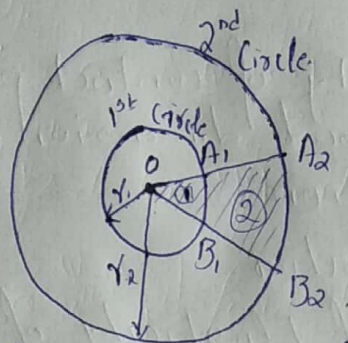 2nd
Circle
1st Circle
O
A1
A2
r1
1
2
B1
r2
B2